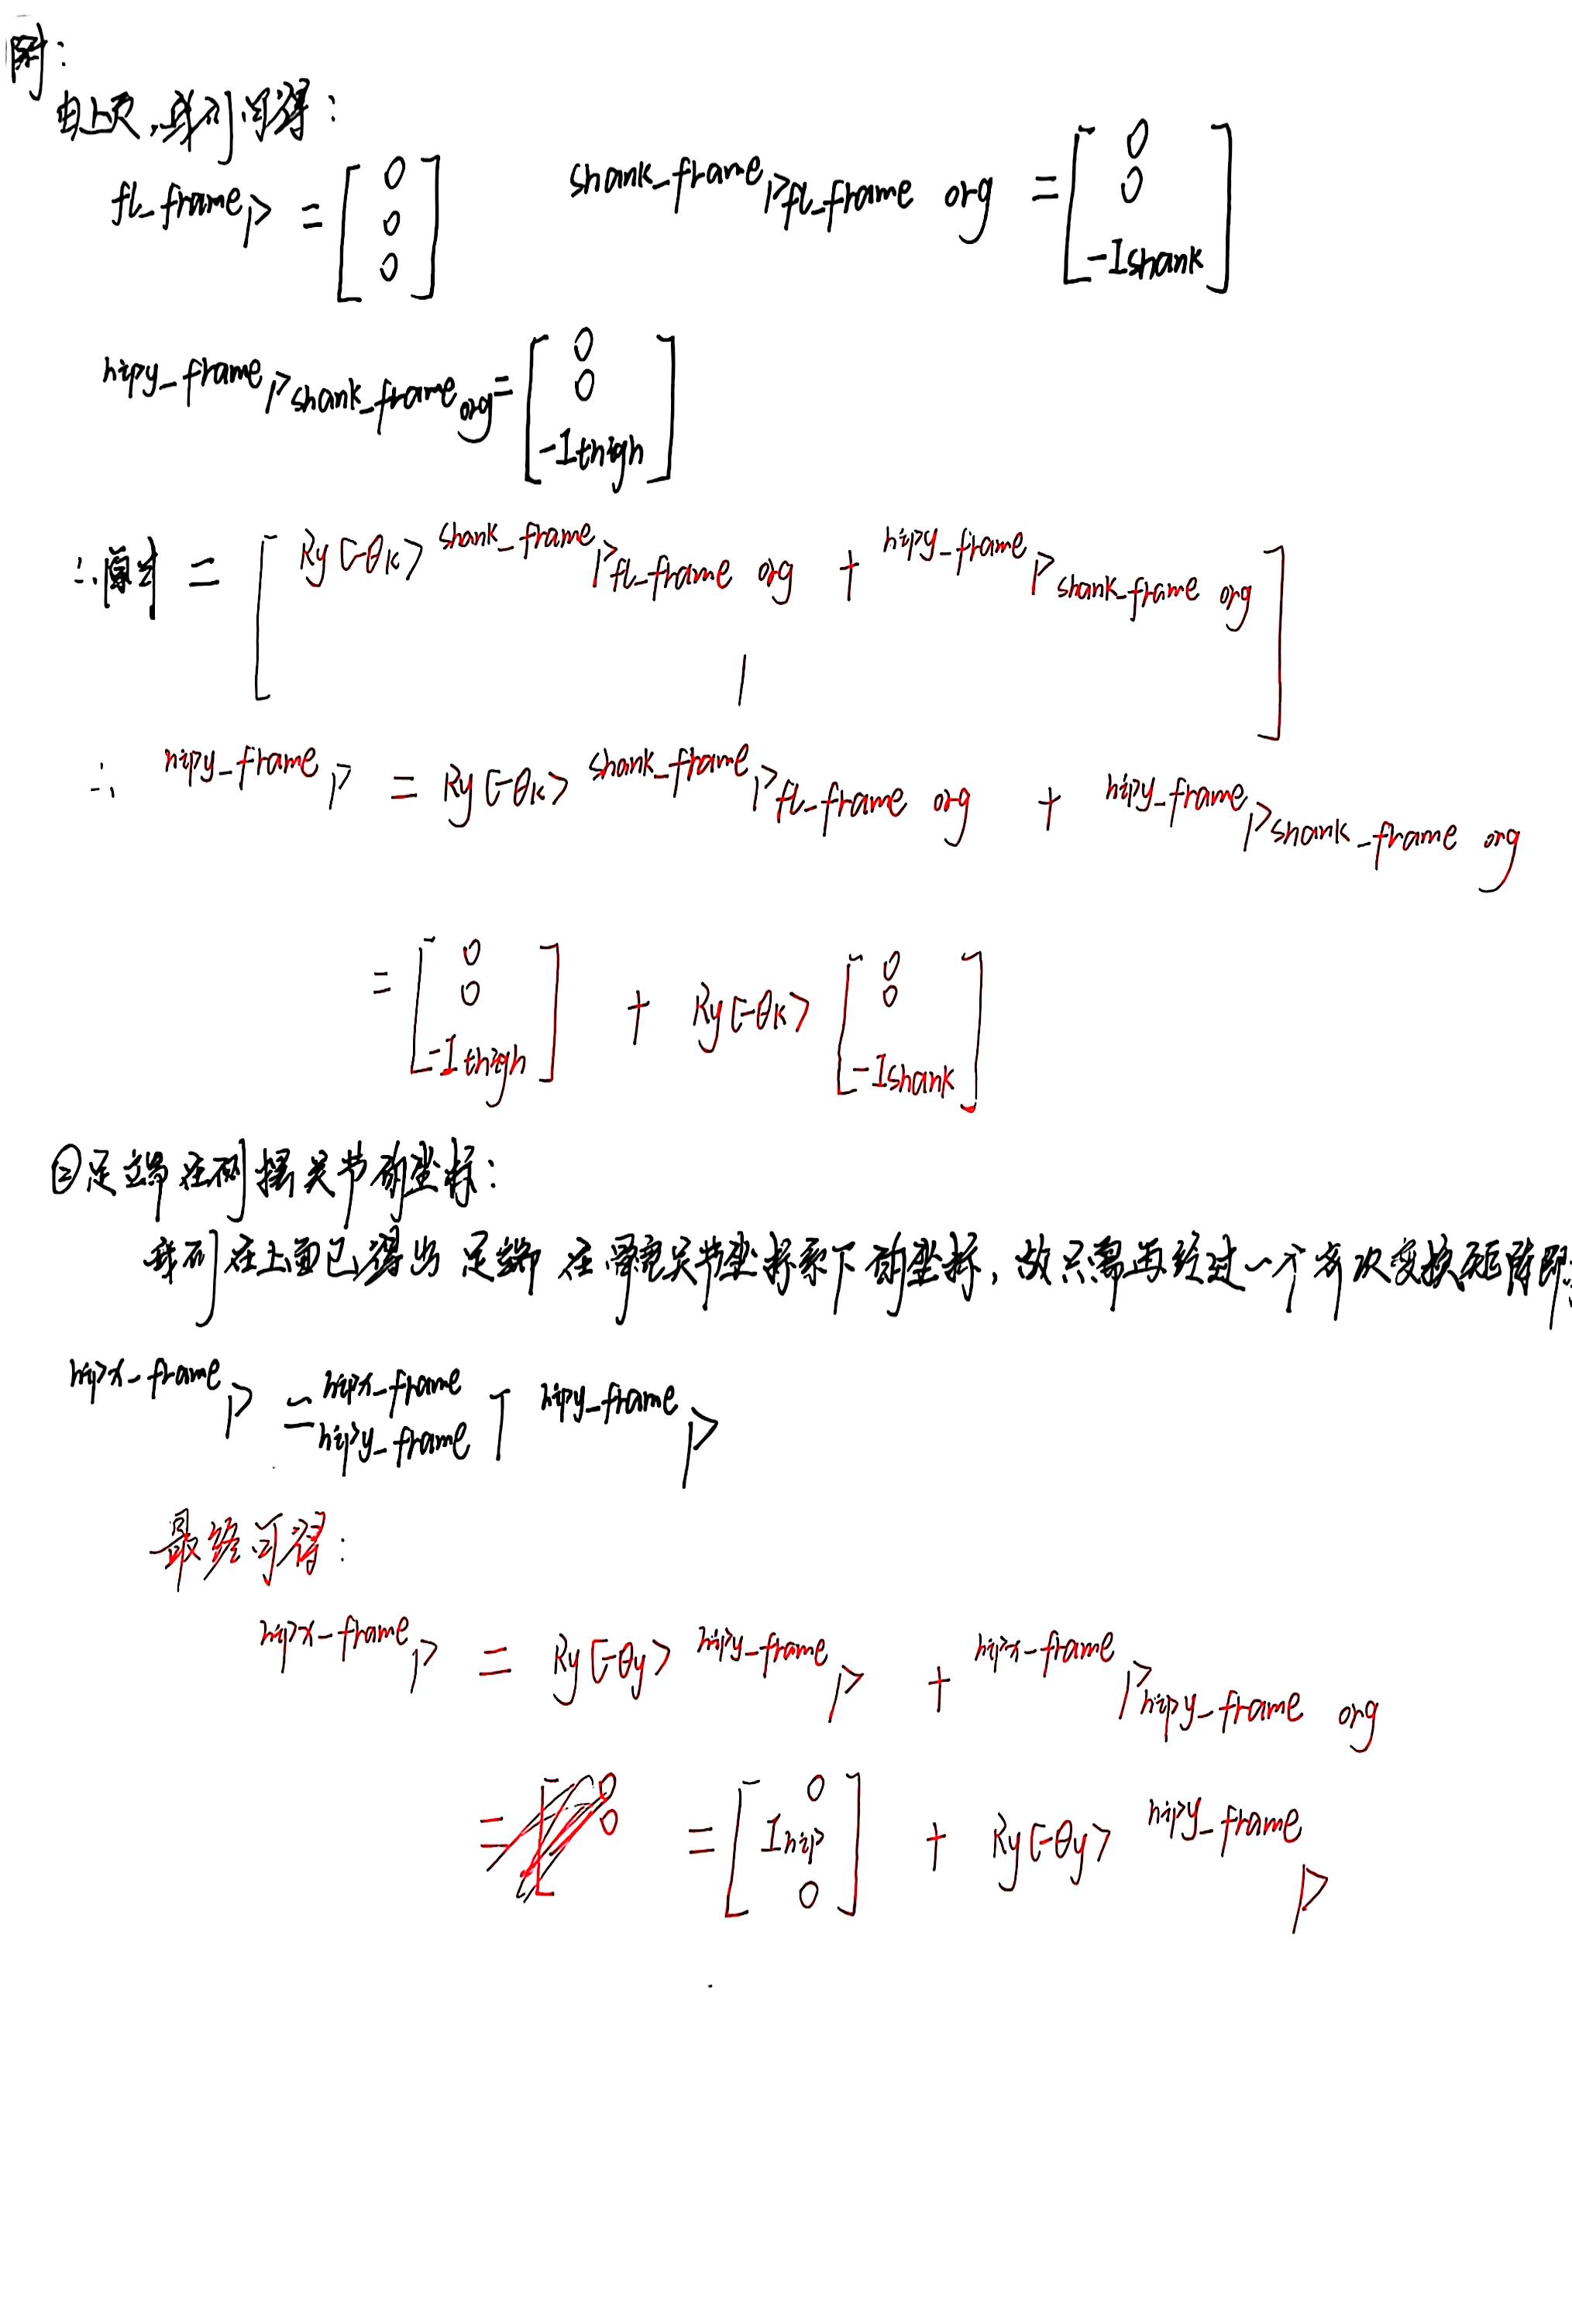 附:
由上页,我们可得:
fl_frame P = [0 0 0]  shank_frame P fl_frame org = [0 0 -Ishank]
hipy_frame P shank_frame org = [0 0 -Ithigh]
∴原式 = [Ry(-θk) shank_frame P fl_frame org + hipy_frame P shank_frame org
1]
∴ hipy_frame P = Ry(-θk) shank_frame P fl_frame org + hipy_frame P shank_frame org
= [0 0 -Ithigh] + Ry(-θk) [0 0 -Ishank]
②足端在侧摆关节的坐标:
我们在上面已得出足端在髋关节坐标系下的坐标,故只需再经过一个齐次变换矩阵即
hipx-frame P = hipx-frame hipy_frame T hipy_frame P
最终可得:
hipx-frame P = Ry(-θy) hipy-frame P + hipx-frame P hipy-frame org
= [0 Ihip 0] + Ry(-θy) hipy_frame P